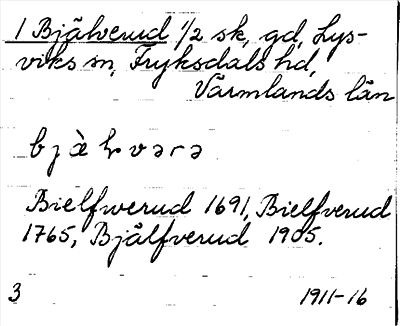 1 Bjälverud 1/2 sk, gd, Lys-
viks sn, Fryksdals hd,
Värmlands län
bjæ̀ɽvərə
Bielfwerud 1691, Bielfverud
1765, Bjälfverud 1905.
3 1911-16